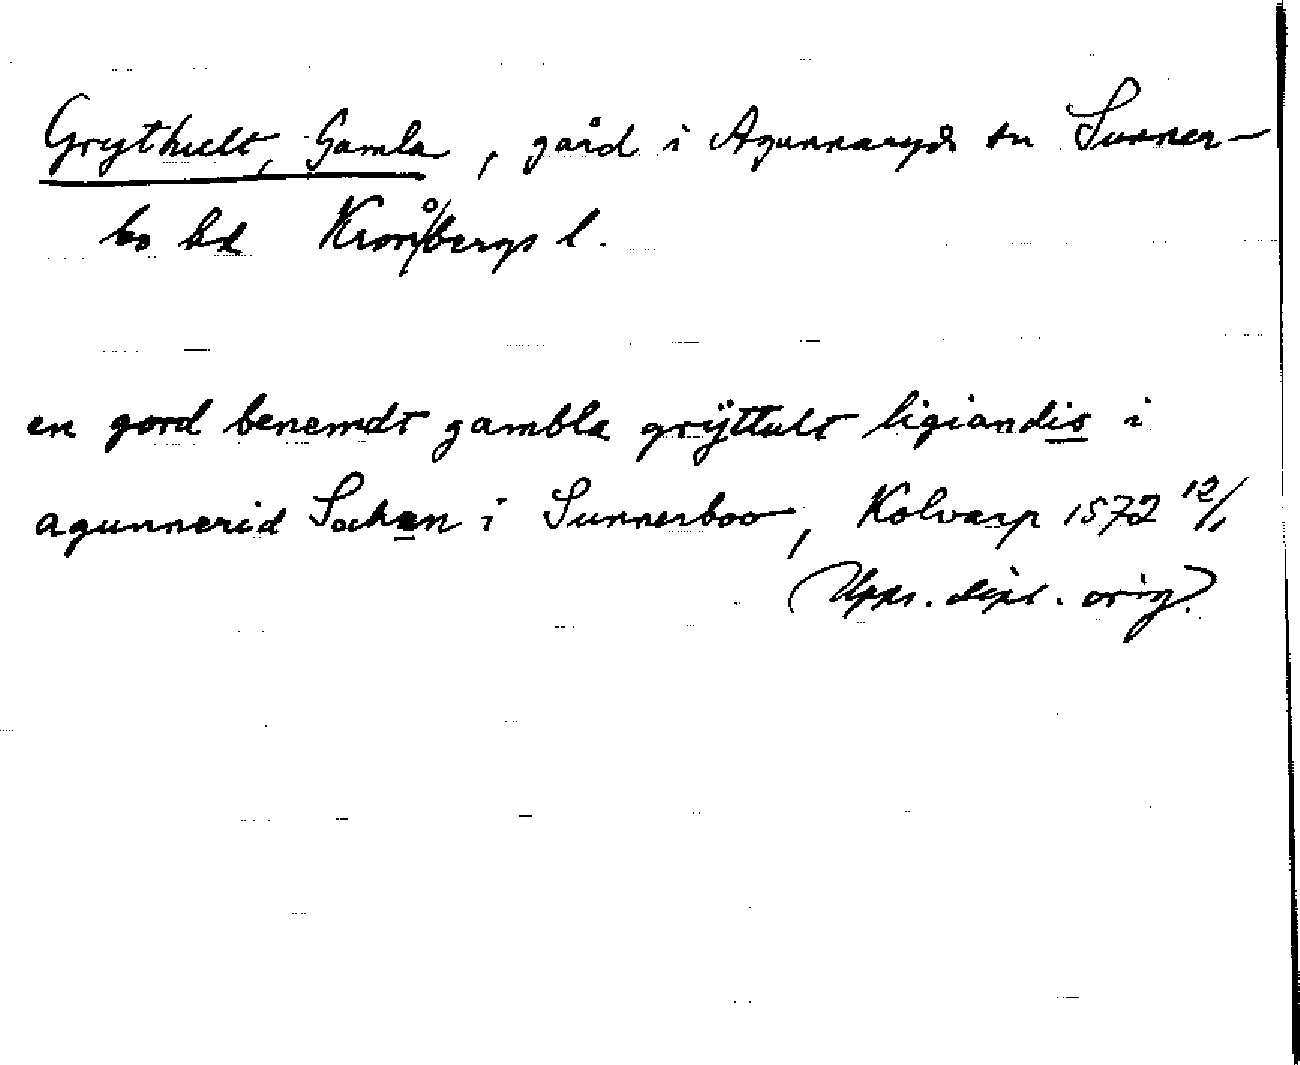 Grythult, Gamla, gård i Agunnaryds sn Sunner-
bo hd Kronobergs l.
en gord benemdt gambla grÿttult ligiandis i
agunnerid Sochen i Sunnerboo, Kolvarp 1572 12/1
(Upps. dipl. orig.)